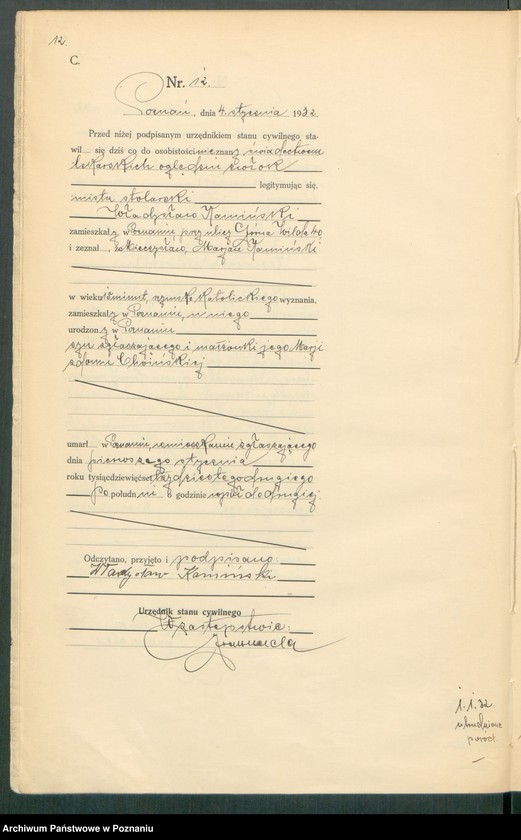 12.
C.
Nr. 12
Poznań, dnia 4. stycznia 1932.
Przed niżej podpisanym urzędnikiem stanu cywilnego, sta-
wił się dziś co do osobistości nieznany, świadectwem
lekarskich oględzin zwłok
legitymując się.
mistrz stolarski
Władysław Kamiński
zamieszkały w Poznaniu przy ulicy Górna Wilda
i zeznał, że Mieczysław, Marjan Kamiński
w wieku minut, rzymsko katolickiego wyznania,
zamieszkały w Poznaniu, u niego
urodzony w Poznaniu
syn zgłaszającego i małżonki jego Marji
zdomu Choińskiej
umarł w Poznaniu, w mieszkaniu zgłaszającego
dnia pierwszego stycznia
roku tysiącdziewięćset trzydziestego drugiego
po południu o godzinie wpół do drugiej.
Odczytano, przyjęto i podpisano:
Władysław Kamiński
Urzędnik stanu cywilnego
W zastępstwie:
1. 1. 32
Archiwum Państwowe w Poznaniu